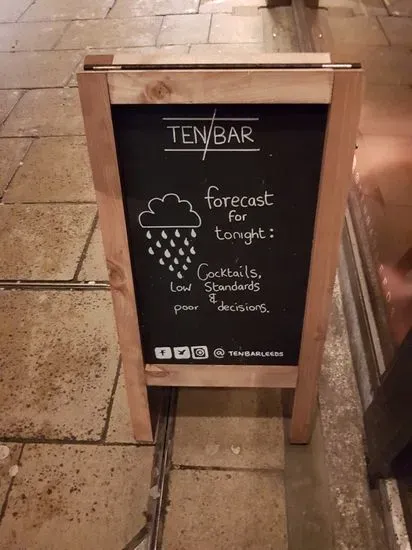 TEN/BAR
forecast
for
tonight:
Cocktails,
Low Standards
&
poor decisions.
@ TENBARLEEDS